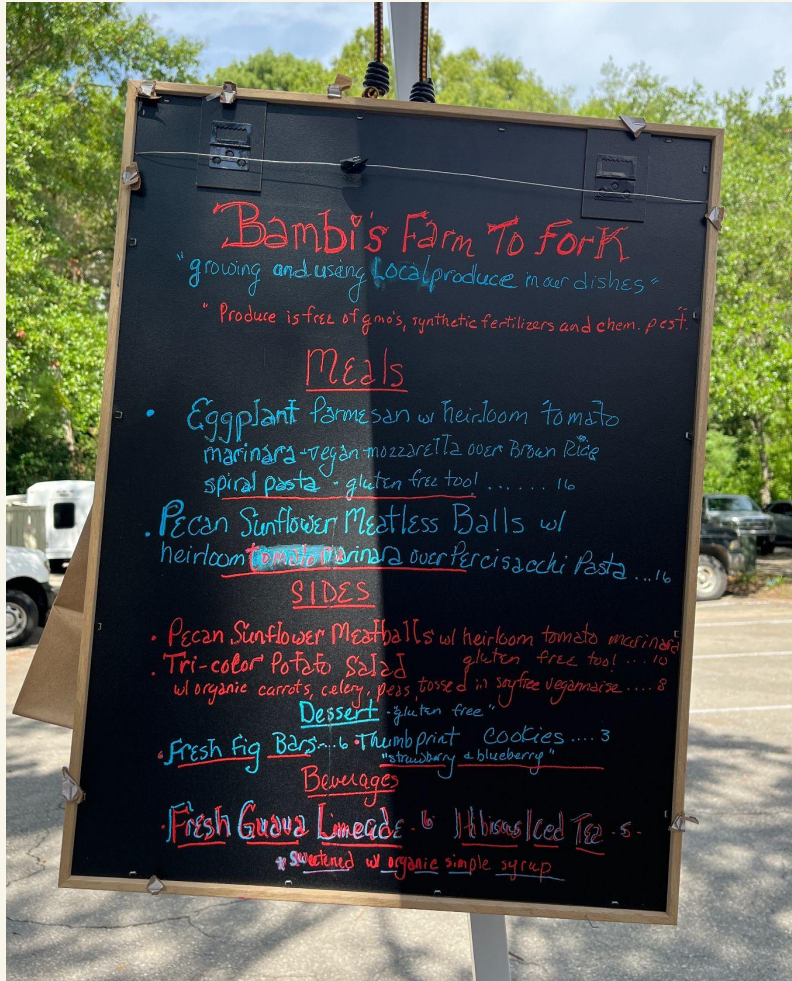 Bambi's Farm To Fork
"growing and using Local produce in our dishes"
"Produce is free of gmo's, synthetic fertilizers and chem. pest."
Meals
• Eggplant Parmesan w/ heirloom tomato
marinara - vegan mozzarella over Brown Rice
spiral pasta - gluten free too! ....... 16
• Pecan Sunflower Meatless Balls w/
heirloom tomato marinara over Percisacchi Pasta ... 16
SIDES
• Pecan Sunflower Meatballs w/ heirloom tomato marinara
gluten free too! .... 10
• Tri-color Potato Salad
w/ organic carrots, celery, peas, tossed in soyfree vegannaise .... 8
Dessert - "gluten free"
• Fresh Fig Bars ... 6 • Thumbprint Cookies .... 3
"strawberry & blueberry"
Beverages
• Fresh Guava Limeade - 6 Hibiscus Iced Tea - 5 -
* Sweetened w/ organic simple syrup